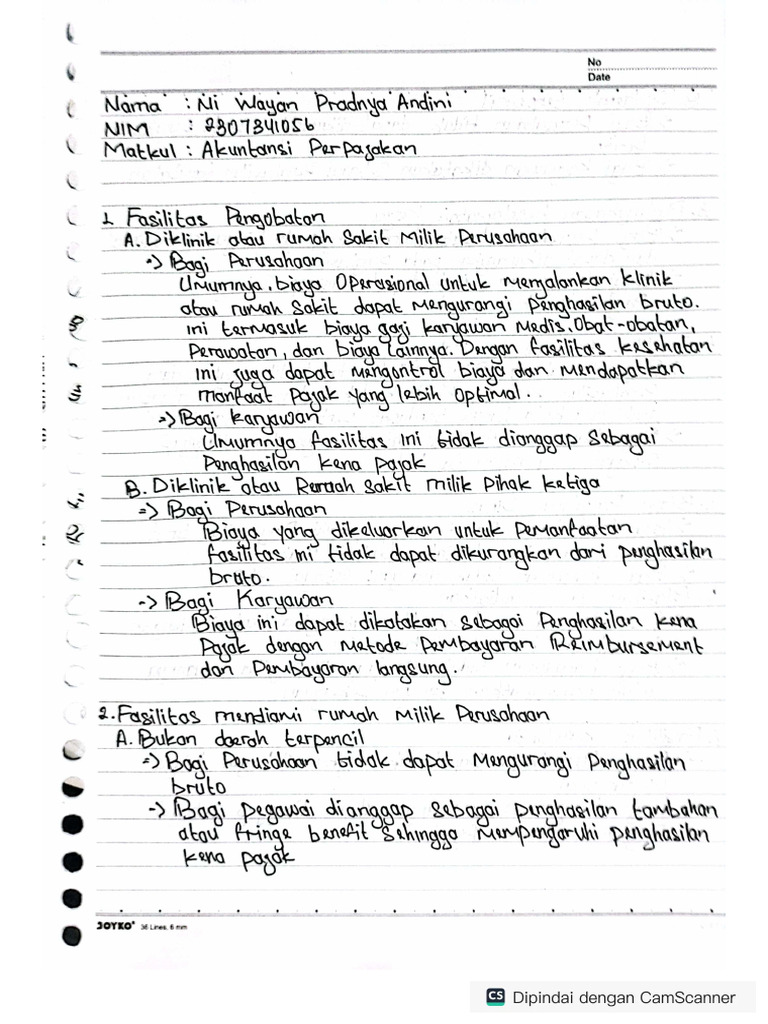 No
Date
Nama : Ni Wayan Pradnya Andini
NIM : 2307341056
Matkul : Akuntansi Perpajakan
1. Fasilitas Pengobatan
A. Diklinik atau rumah Sakit Milik Perusahaan
=> Bagi Perusahaan
Umumnya, biaya Operasional untuk menjalankan klinik
atau rumah sakit dapat mengurangi penghasilan bruto.
ini termasuk biaya gaji karyawan medis, obat-obatan,
Perawatan, dan biaya lainnya. Dengan fasilitas kesehatan
ini juga dapat mengontrol biaya dan mendapatkan
manfaat pajak yang lebih optimal.
=> Bagi karyawan
Umumnya fasilitas ini tidak dianggap sebagai
Penghasilan kena pajak
B. Diklinik atau Rumah Sakit milik Pihak ketiga
=> Bagi Perusahaan
Biaya yang dikeluarkan untuk Pemanfaatan
fasilitas ini tidak dapat dikurangkan dari penghasilan
bruto.
-> Bagi Karyawan
Biaya ini dapat dikatakan sebagai Penghasilan kena
Pajak dengan metode Pembayaran Reimbursement
dan Pembayaran langsung.
2. Fasilitas mendiami rumah Milik Perusahaan
A. Bukan daerah terpencil
=> Bagi Perusahaan tidak dapat Mengurangi Penghasilan
bruto
-> Bagi pegawai dianggap sebagai penghasilan tambahan
atau fringe benefit Sehingga mempengaruhi penghasilan
kena pajak
JOYKO 36 Lines, 6 mm
CS Dipindai dengan CamScanner